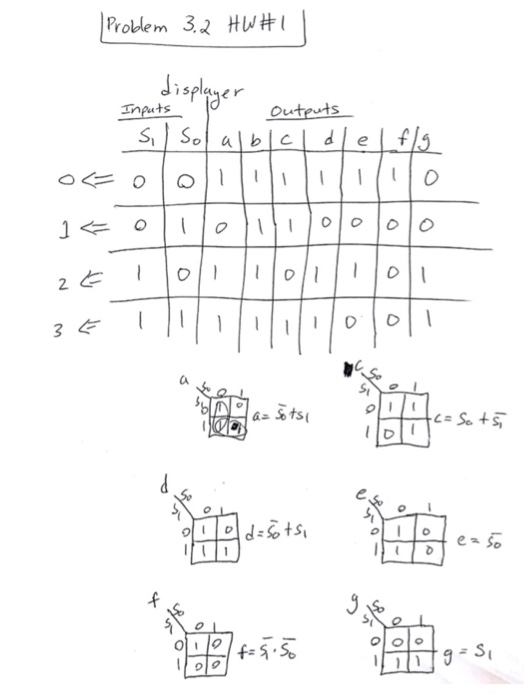 Problem 3.2 HW#1
displayer
Inputs Outputs
S₁ S₀ a b c d e f g
0 ⇐ 0 0 1 1 1 1 1 1 0
1 ⇐ 0 1 0 1 1 0 0 0 0
2 ⇐ 1 0 1 1 0 1 1 0 1
3 ⇐ 1 1 1 1 1 1 0 0 1
a S₀ 0 1
S₁ 0 1 0
1 1 1
a = S̅₀ + S₁
c S₀ 0 1
S₁ 0 1 1
1 0 1
c = S₀ + S̅₁
d S₀ 0 1
S₁ 0 1 0
1 1 1
d = S̅₀ + S₁
e S₀ 0 1
S₁ 0 1 0
1 1 0
e = S̅₀
f S₀ 0 1
S₁ 0 1 0
1 0 0
f = S̅₁ · S̅₀
g S₀ 0 1
S₁ 0 0 0
1 1 1
g = S₁